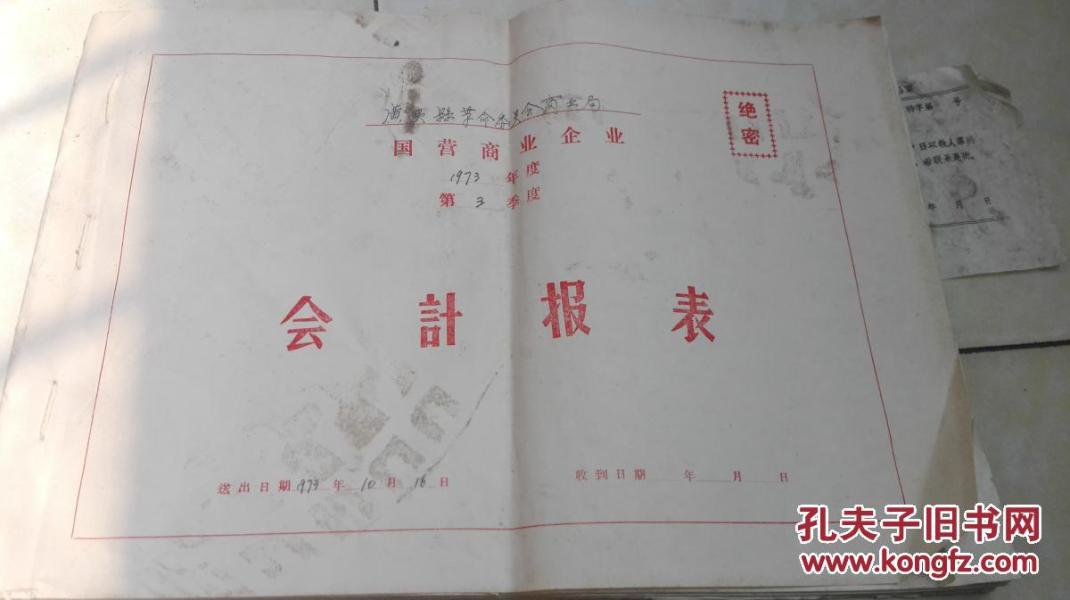 县革命委员会商业局
绝密
国营商业企业
1973 年度
第 3 季度
会計报表
送出日期 1973 年 10 月 16 日
收到日期 年 月 日
号
年 月 日
孔夫子旧书网
www.kongfz.com